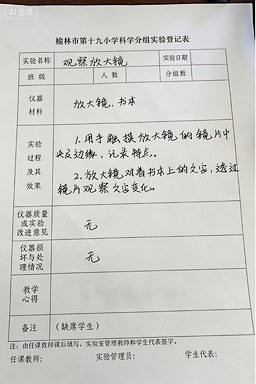 AI生成
榆林市第十九小学科学分组实验登记表
实验名称 观察放大镜 实验日期
班级 人数 分组数
仪器材料 放大镜,书本
实验过程及其效果 1.用手触摸放大镜的镜片中
央及边缘,记录特点。
2.放大镜对着书本上的文字,透过
镜片观察文字变化。
仪器质量或实验改进意见 无
仪器损坏与处理情况 无
教学心得
备注 (缺席学生)
注:由任课教师课后填写,实验室管理教师和学生代表签字。
任课教师: 实验管理员: 学生代表: